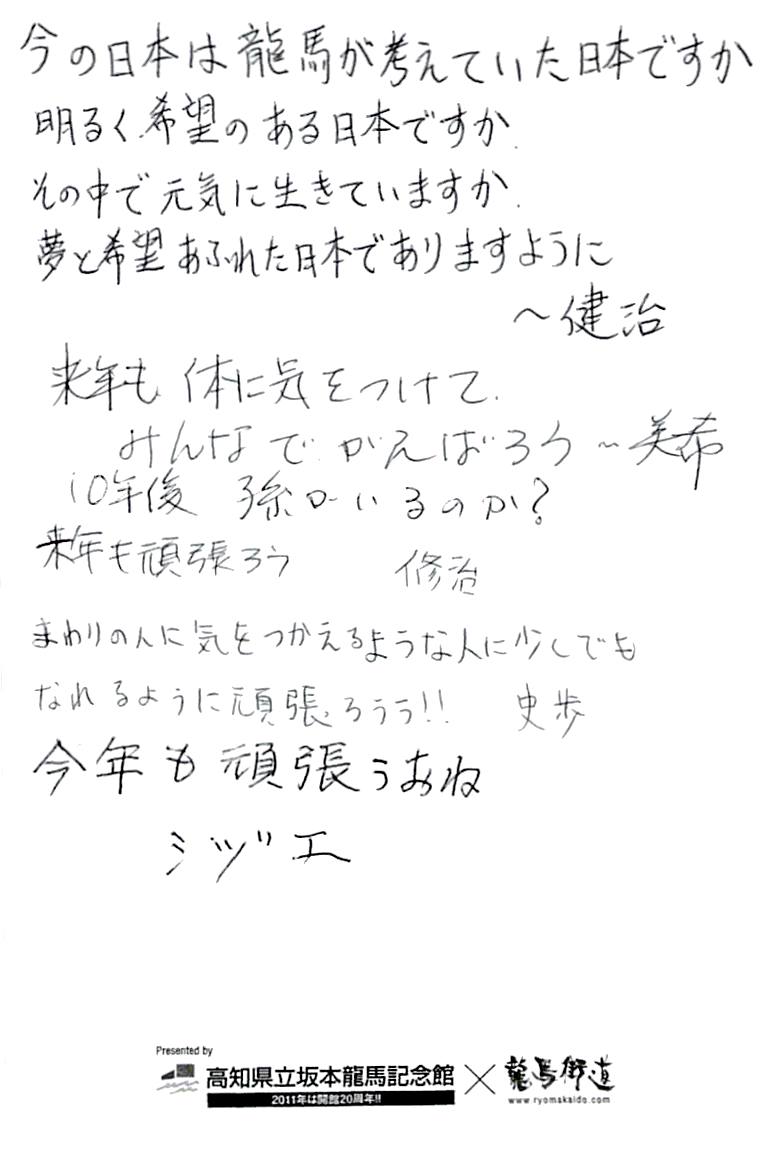 今の日本は龍馬が考えていた日本ですか
明るく希望のある日本ですか
その中で元気に生きていますか
夢と希望あふれた日本でありますように
～健治
来年も体に気をつけて
みんなでがんばろう～美希
10年後 孫がいるのか?
来年も頑張ろう 修治
まわりの人に気をつかえるような人に少しでも
なれるように頑張ろうう!! 史歩
今年も頑張うあね
シヅエ
Presented by
高知県立坂本龍馬記念館×龍馬街道
2011年は開館20周年!!
www.ryomakaido.com